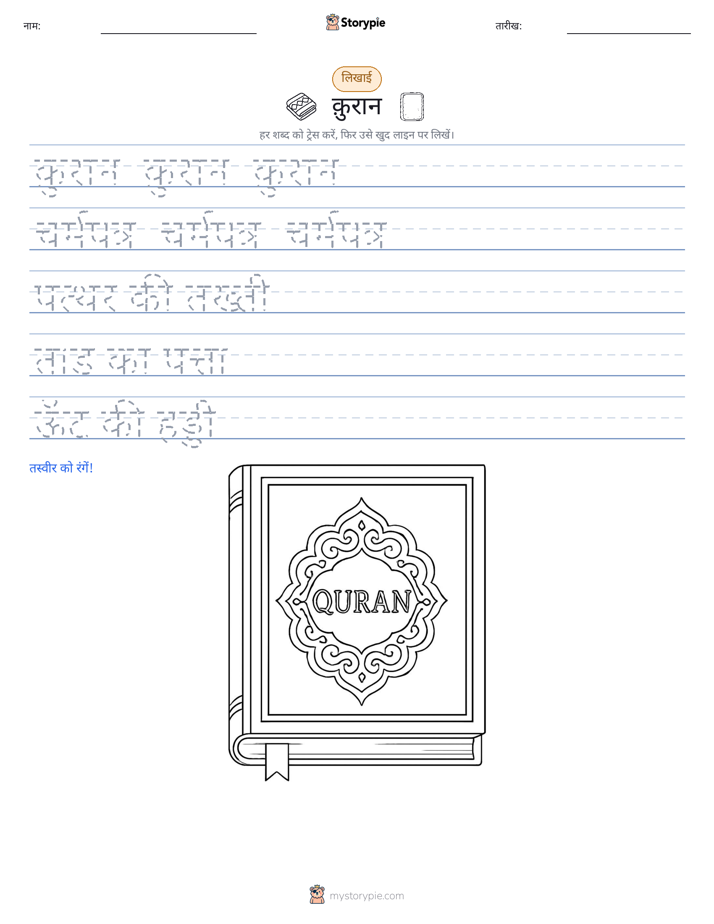 नाम:
Storypie
तारीख:
लिखाई
क़ुरान
हर शब्द को ट्रेस करें, फिर उसे खुद लाइन पर लिखें।
क़ुरान क़ुरान क़ुरान
चर्मपत्र चर्मपत्र चर्मपत्र
पत्थर की तख़्ती
ताड़ का पत्ता
ऊँट की हड्डी
तस्वीर को रंगें!
QURAN
mystorypie.com